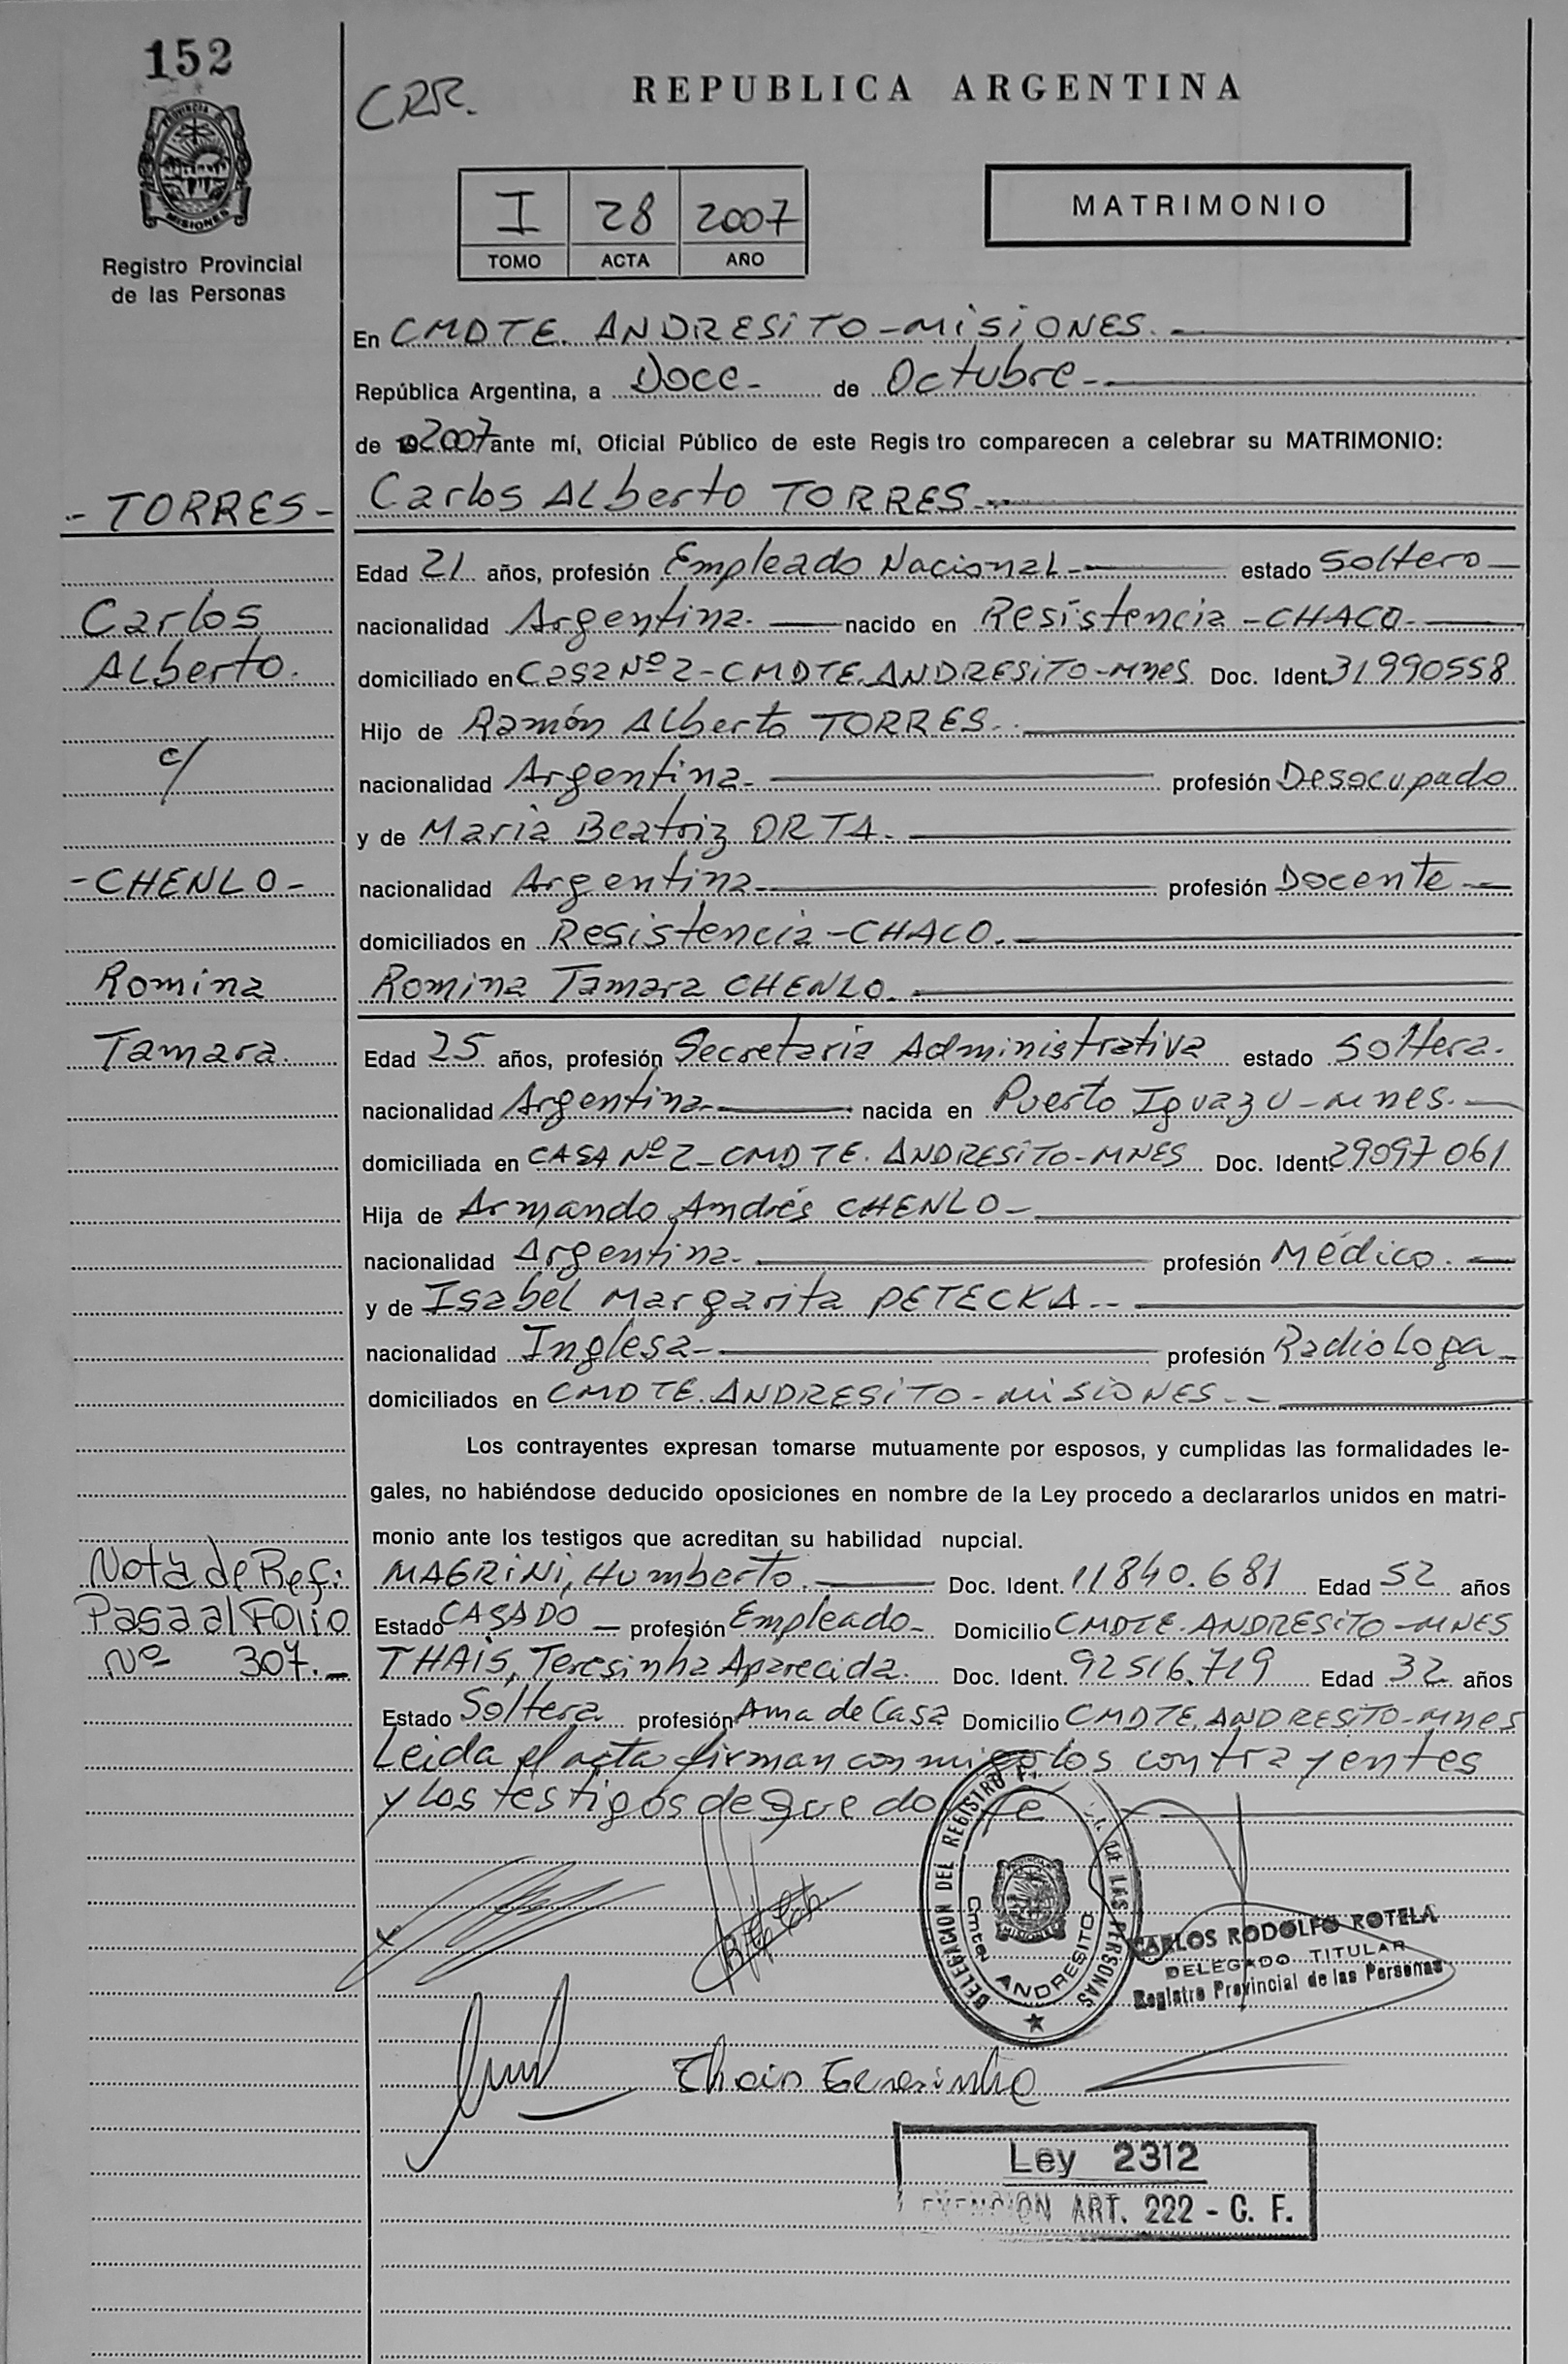 152
CRR.
REPUBLICA ARGENTINA
PROVINCIA DE
MISIONES
Registro Provincial
de las Personas
I 28 2007
TOMO ACTA AÑO
MATRIMONIO
En CMDTE. ANDRESiTO-MiSiONES.
República Argentina, a Doce- de Octubre-
de 2007 ante mí, Oficial Público de este Regis tro comparecen a celebrar su MATRIMONIO:
- TORRES - Carlos ALberto TORRES.-
Edad 21 años, profesión Empleado NacionaL- estado Soltero
Carlos nacionalidad Argentina. nacido en Resistencia -CHACO-
ALberto. domiciliado en Casa Nº 2-CMDTE.ANDRESiTO-Mnes Doc. Ident. 31990558
Hijo de Ramón ALberto TORRES.
c/ nacionalidad Argentina- profesión Desocupado
y de Maria Beatriz ORTA.
-CHENLO- nacionalidad Argentina- profesión Docente
domiciliados en Resistencia -CHACO.
Romina Romina Tamara CHENLO.
Tamara. Edad 25 años, profesión Secretaria Administrativa estado Soltera.
nacionalidad Argentina- nacida en Puerto Iguazu-Mnes.
domiciliada en CASA Nº 2-CMDTE. ANDRESiTO-MNES Doc. Ident. 29097061
Hija de Armando Andrés CHENLO-
nacionalidad Argentina- profesión Médico.
y de Isabel Margarita PETECKA.-
nacionalidad Inglesa- profesión RadioLoga-
domiciliados en CMDTE.ANDRESiTO-MiSiONES.-
Los contrayentes expresan tomarse mutuamente por esposos, y cumplidas las formalidades le-
gales, no habiéndose deducido oposiciones en nombre de la Ley procedo a declararlos unidos en matri-
monio ante los testigos que acreditan su habilidad nupcial.
Nota de Ref: MAGRiNi, Humberto. Doc. Ident. 11840.681 Edad 52 años
Pasa al Folio Estado CASADO profesión Empleado- Domicilio CMDTE.ANDRESiTO-MNES
Nº 307.- THAiS, Teresinha Aparecida. Doc. Ident. 92516.719 Edad 32 años
Estado Soltera profesión Ama de Casa Domicilio CMDTE.ANDRESiTO-Mnes
Leida el acta firman con migo los contrayentes
y Los testigos de que doy fe
DELEGACION DEL REGISTRO P. DE LAS PERSONAS
Cmte. ANDRESITO
CARLOS RODOLFO ROTELA
DELEGADO TITULAR
Registro Provincial de las Personas
Thais Teresinha
Ley 2312
ART. 222 - C. F.